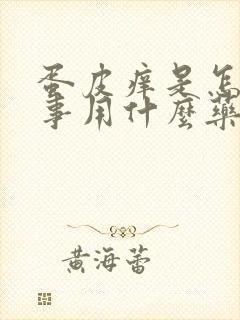 蛋皮痒是怎
事用什麼藥
黄海蕾